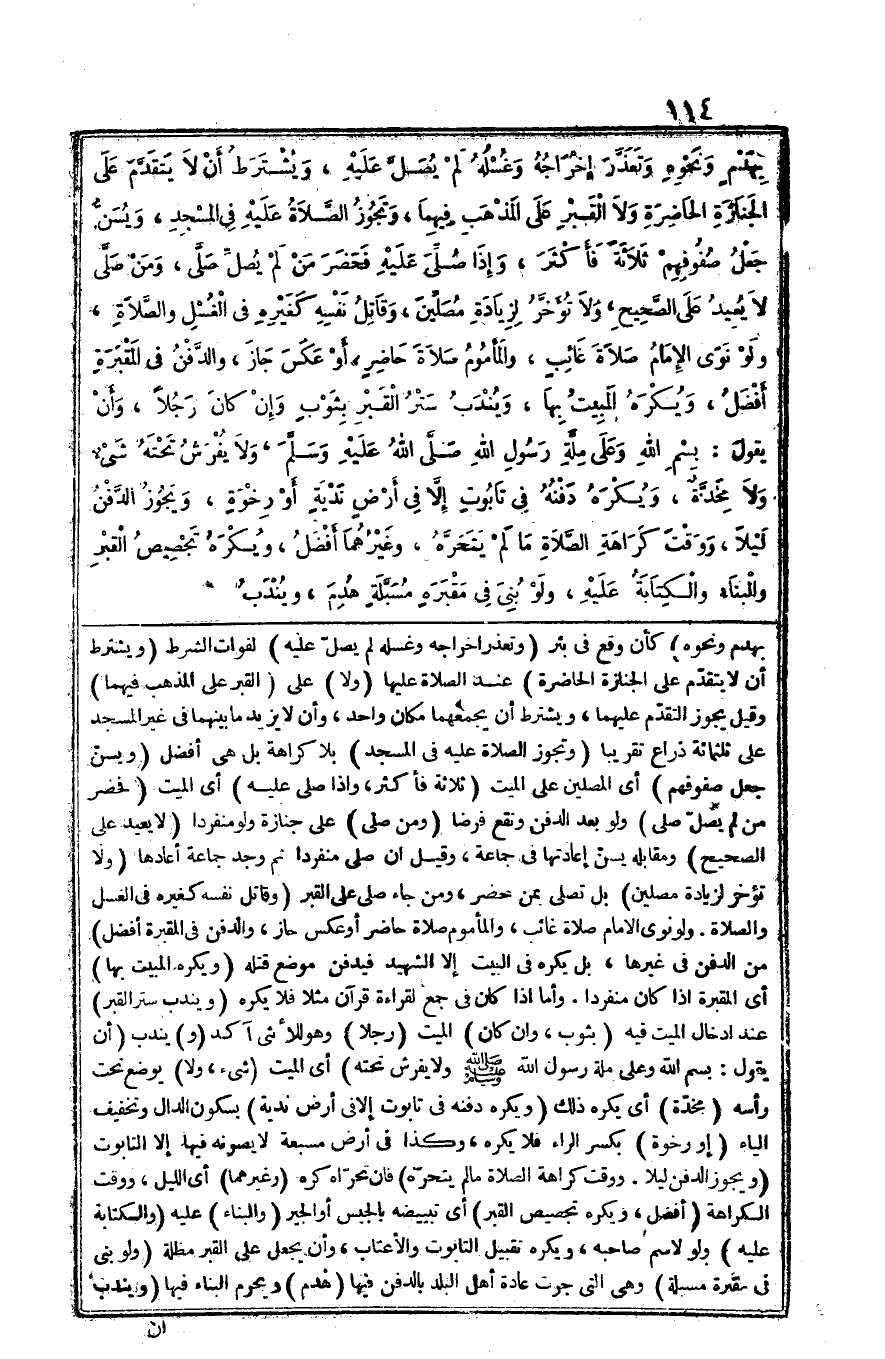 ١١٤
بِهَدْمٍ وَنَحْوِهِ وَتَعَذَّرَ إِخْرَاجُهُ وَغُسْلُهُ لَمْ يُصَلَّ عَلَيْهِ ، وَيُشْتَرَطُ أَنْ لاَ يَتَقَدَّمَ عَلَى
الْجَنَازَةِ الْحَاضِرَةِ وَلاَ الْقَبْرِ عَلَى الْمَذْهَبِ فِيهِمَا ، وَتَجُوزُ الصَّلاَةُ عَلَيْهِ فِي المَسْجِدِ ، وَيُسَنُّ
جَعْلُ صُفُوفِهِمْ ثَلاَثَةً فَأَكْثَرَ ، وَإِذَا صُلِّىَ عَلَيْهِ فَحَضَرَ مَنْ لَمْ يُصَلِّ صَلَّى ، وَمَنْ صَلَّى
لاَ يُعِيدُ عَلَى الصَّحِيحِ ، وَلاَ تُؤَخَّرُ لِزِيَادَةِ مُصَلِّينَ ، وَقَاتِلُ نَفْسِهِ كَغَيْرِهِ فى الْغُسْلِ والصَّلاَةِ ،
ولَوْ نَوَى الإِمَامُ صَلاَةَ غَائِبٍ ، والمَأْمُومُ صَلاَةَ حَاضِرٍ ، أَوْ عَكَسَ جَازَ ، والدَّفْنُ فى المَقْبَرَةِ
أَفْضَلُ ، وَيُكْرَهُ المَبِيتُ بِهَا ، وَيُنْدَبُ سَتْرُ الْقَبْرِ بِثَوْبٍ وَإِنْ كانَ رَجُلاً ، وَأَنْ
يقولَ : بِسْمِ اللهِ وَعَلَى مِلَّةِ رَسُولِ اللهِ صَلَّى اللهُ عَلَيْهِ وَسَلَّمَ ، وَلاَ يُفْرَشُ تَحْتَهُ شَىْءٌ
وَلاَ مِخَدَّةٌ ، وَيُكْرَهُ دَفْنُهُ فِي تَابُوتٍ إِلَّا فِي أَرْضٍ نَدْيَةٍ أَوْ رِخْوَةٍ ، وَيَجُوزُ الدَّفْنُ
لَيْلاً ، وَوَقْتَ كَرَاهَةِ الصَّلاَةِ مَا لَمْ يَتَحَرَّهُ ، وغَيْرُهُمَا أَفْضَلُ ، ويُكْرَهُ تَجْصِيصُ الْقَبْرِ
والْبِنَاءُ والْكِتَابَةُ عَلَيْهِ ، ولَوْ بُنِىَ فِي مَقْبَرَةٍ مُسَبَّلَةٍ هُدِمَ ، ويُنْدَبُ
بهدم ونحوه) كأن وقع فى بئر (وتعذر اخراجه وغسله لم يصلّ عليه) لفوات الشرط (ويشترط
أن لا يتقدّم على الجنازة الحاضرة) عند الصلاة عليها (ولا) على (القبر على المذهب فيهما)
وقيل يجوز التقدّم عليهما ، ويشترط أن يجمعهما مكان واحد ، وأن لا يزيد ما بينهما فى غير المسجد
على ثلثمائة ذراع تقريبا (وتجوز الصلاة عليه فى المسجد) بلا كراهة بل هى أفضل (ويسنّ
جعل صفوفهم) أى المصلين على الميت (ثلاثة فأكثر، واذا صلى عليه) أى الميت (فحضر
من لم يصلّ صلى) ولو بعد الدفن وتقع فرضا (ومن صلى) على جنازة ولو منفردا (لا يعيد على
الصحيح) ومقابله يسنّ إعادتها فى جماعة ، وقيل ان صلى منفردا ثم وجد جماعة أعادها (ولا
تؤخر لزيادة مصلين) بل تصلى بمن حضر ، ومن جاء صلى على القبر (وقاتل نفسه كغيره فى الغسل
والصلاة . ولو نوى الامام صلاة غائب ، والمأموم صلاة حاضر أو عكس جاز ، والدفن فى المقبرة أفضل)
من الدفن فى غيرها ، بل يكره فى البيت إلا الشهيد فيدفن موضع قتله (ويكره المبيت بها)
أى المقبرة اذا كان منفردا . وأما اذا كان فى جمع لقراءة قرآن مثلا فلا يكره (ويندب ستر القبر)
عند ادخال الميت فيه (بثوب ، وان كان) الميت (رجلا) وهو للأنثى آكد (و) يندب (أن
يقول : بسم الله وعلى ملة رسول الله ﷺ ولا يفرش تحته) أى الميت (شىء ، ولا) يوضع تحت
رأسه (مخدّة) أى يكره ذلك (ويكره دفنه فى تابوت إلا فى أرض ندية) بسكون الدال وتخفيف
الياء (أو رخوة) بكسر الراء فلا يكره ، وكذا فى أرض مسبعة لا يصونه فيها إلا التابوت
(ويجوز الدفن ليلا . ووقت كراهة الصلاة مالم يتحرّه) فان تحرّاه كره (وغيرهما) أى الليل ، ووقت
الكراهة (أفضل ، ويكره تجصيص القبر) أى تبييضه بالجبس أو الجير (والبناء) عليه (والكتابة
عليه) ولو لاسم صاحبه ، ويكره تقبيل التابوت والأعتاب ، وأن يجعل على القبر مظلة (ولو بنى
فى مقبرة مسبلة) وهى التى جرت عادة أهل البلد بالدفن فيها (هدم) ويحرم البناء فيها (ويندب
ان